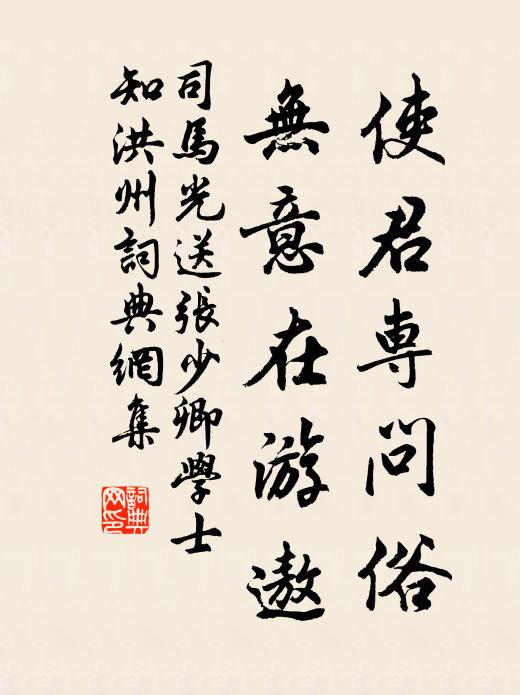 使君専問俗
無意在游遨
司馬光送張少卿學士
知洪州詞典網集
詞典
网印